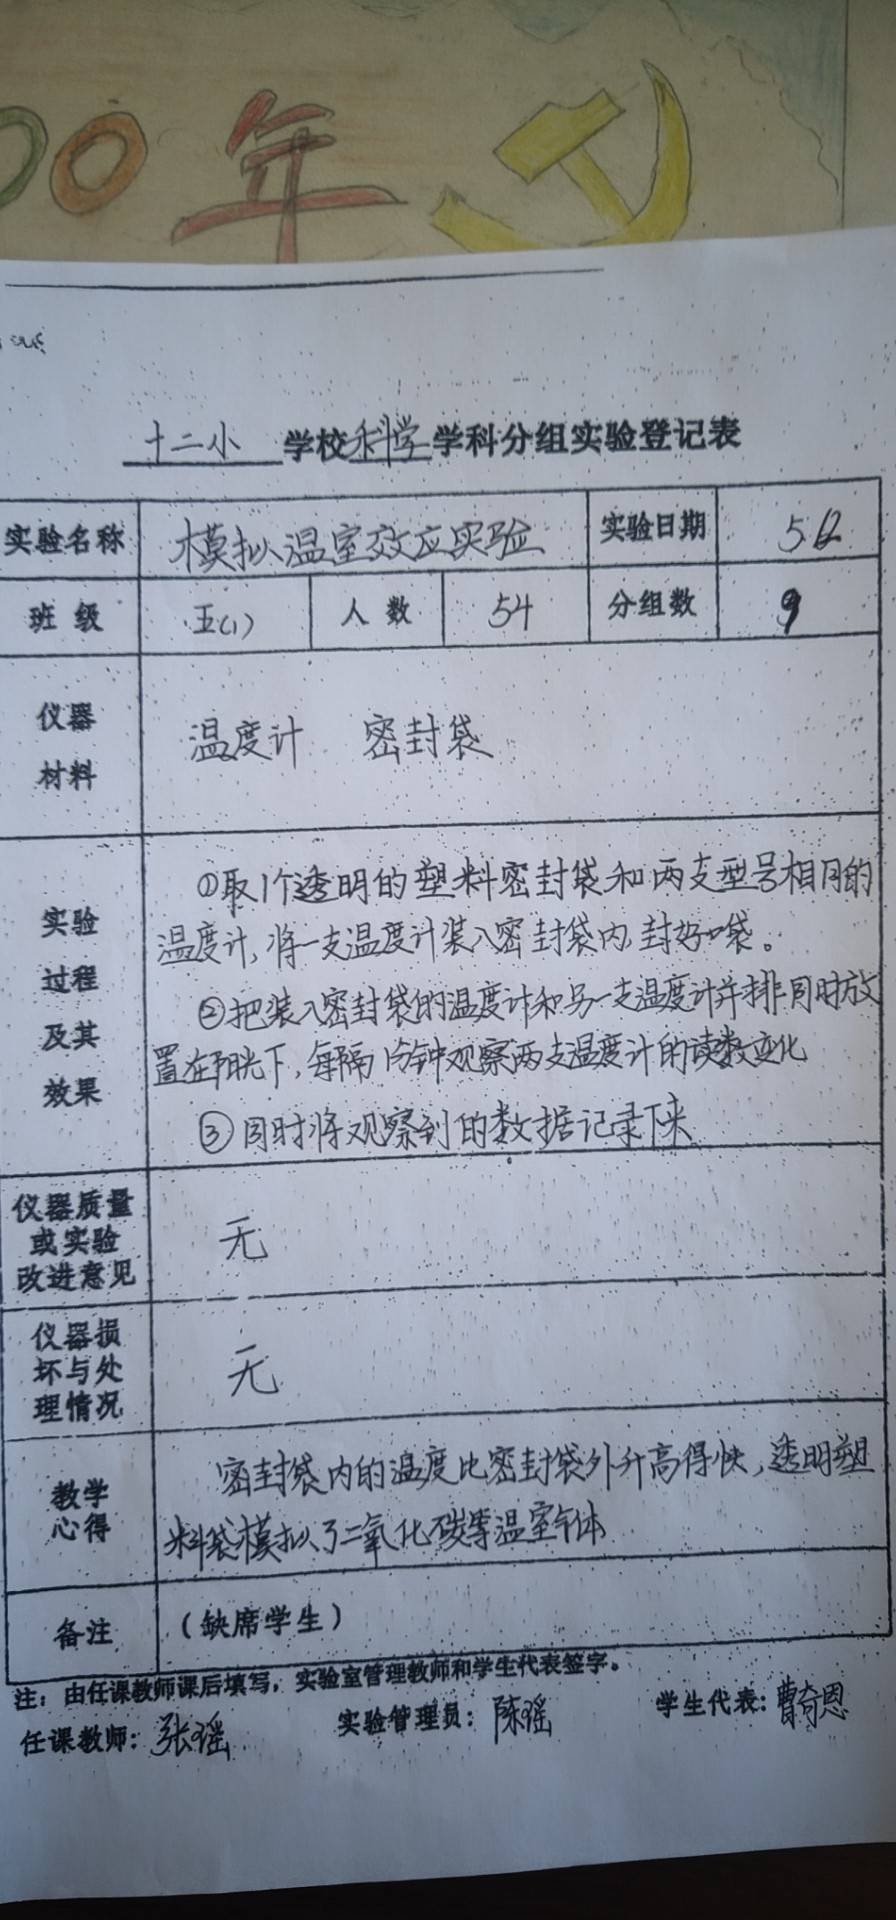 00年
十二小 学校科学学科分组实验登记表
实验名称 模拟温室效应实验 实验日期 5.12
班级 五(1) 人数 54 分组数 9
仪器
材料
温度计 密封袋
实验
过程
及其
效果
①取1个透明的塑料密封袋和两支型号相同的
温度计,将一支温度计装入密封袋内,封好口袋。
②把装入密封袋的温度计和另一支温度计并排同时放
置在阳光下,每隔1分钟观察两支温度计的读数变化
③同时将观察到的数据记录下来
仪器质量
或实验
改进意见
无
仪器损
坏与处
理情况
无
教学
心得
密封袋内的温度比密封袋外升高得快,透明塑
料袋模拟了二氧化碳等温室气体
备注 (缺席学生)
注:由任课教师课后填写,实验室管理教师和学生代表签字。
任课教师:张瑶 实验管理员:陈瑶 学生代表:曹奇恩